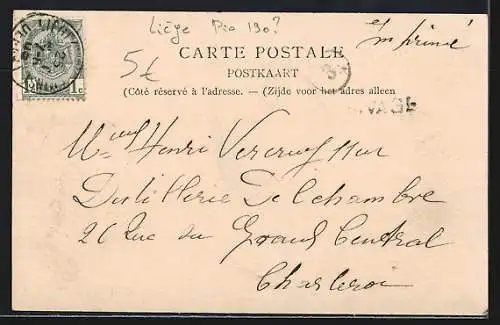 Liége Pio 190?
Imprimé
5£
CARTE POSTALE
POSTKAART
(Côté réservé à l'adresse. — (Zijde voor het adres alleen
3
VAGE
1 c
Henri Vercruysse
Distillerie Delchambre
26 Rue du Grand Central
Charleroi